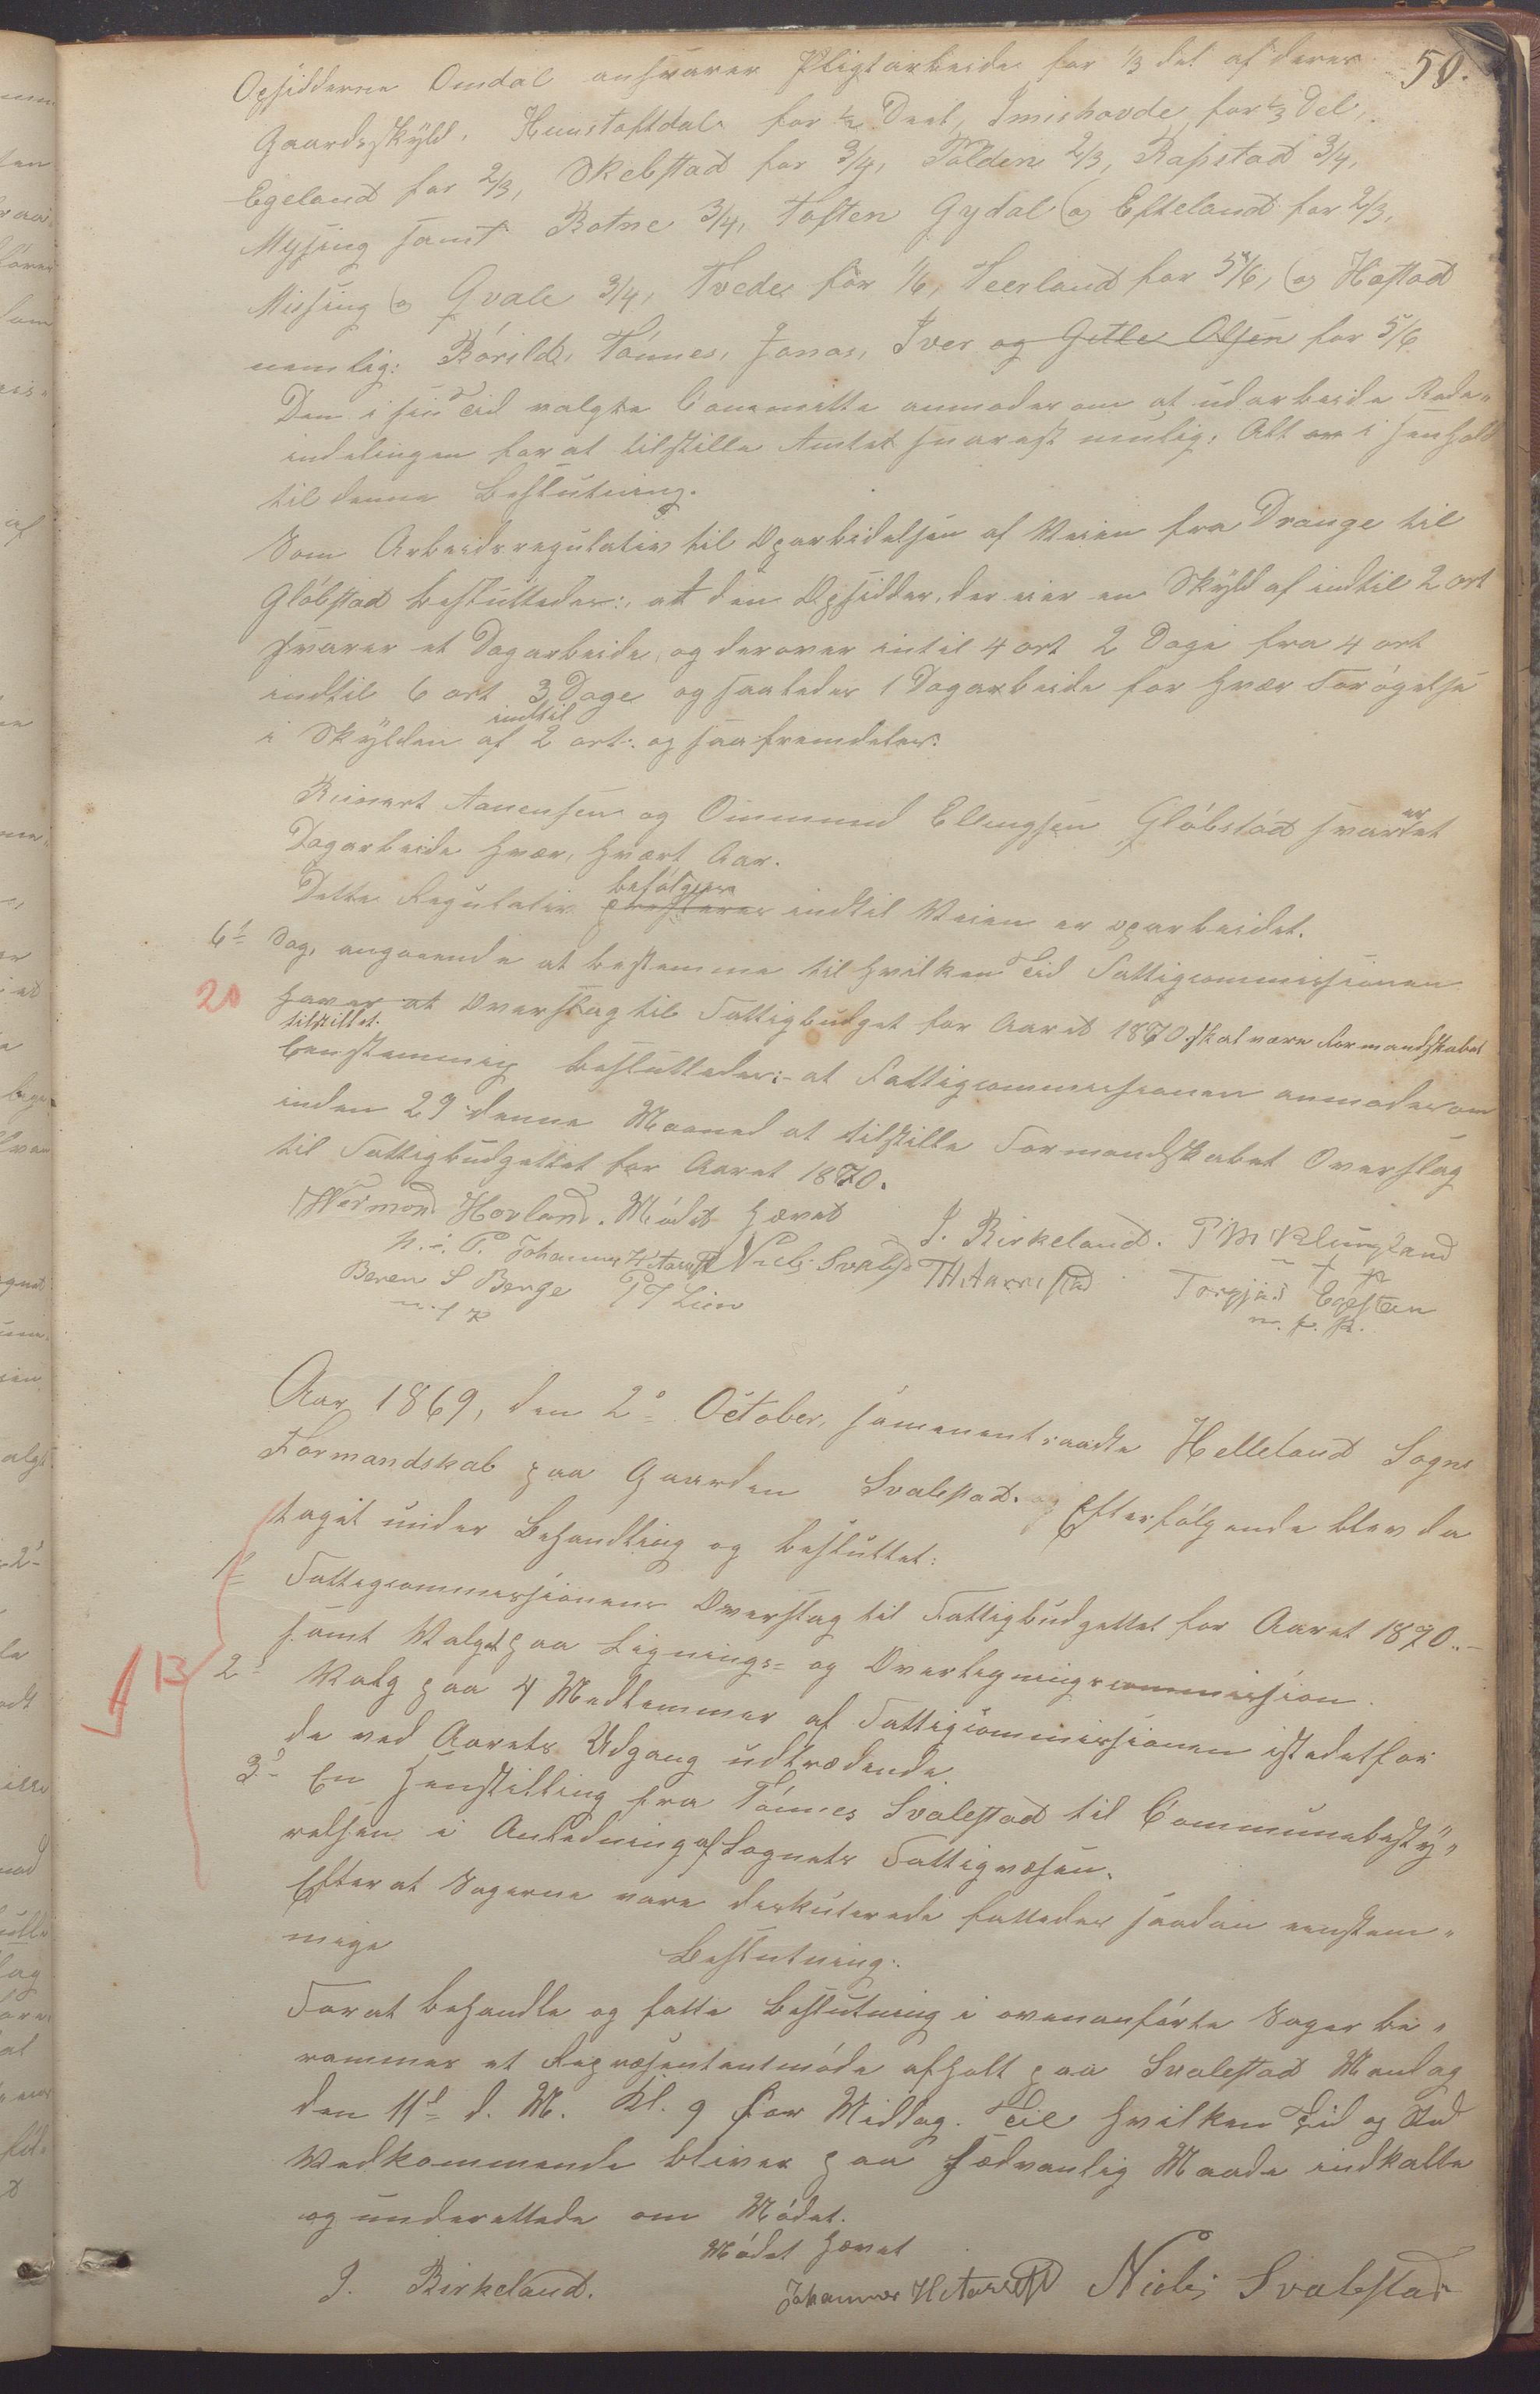 50.
Opsidderne Omdal ansvarer Pligtarbeide for 1/3 del af deres
Gaardsskyld, Hunstoftdal for 1/2 Deel, Imishovde for 1/3 Del,
Egeland for 2/3, Skebstad for 3/4, Tolden 2/3, Rapstad 3/4,
Mysing samt Botne 3/4, Toften Gydal og Efteland for 2/3,
Missing og Qvale 3/4, Tvedes for 1/6, Teerland for 5/6, og Hastad
nemlig: Bórild, Tónnes, Jonas, Iver og Gitle Olsen for 5/6
Den i sin Tid valgte Committe anmodes om at udarbeide Rode-
indelingen for at tilstille Amtet snarest mulig. Alt i Henhold
til denne Beslutning.
Som Arbeidsregulativ til Oparbeidelsen af Veien fra Drange til
Glóbstad besluttedes: at den Opsidder, der eier en Skyld af indtil 2 ort
svarer et Dagarbeide, og derover intil 4 ort 2 Dage fra 4 ort
indtil 6 ort 3 Dage og saaledes 1 Dagarbeide for hvær Forógelse
i Skylden af indtil 2 ort. og saa fremdeles.
Reinert Aanensen og Ommund Ellingsen Glóbstad svarer et
Dagarbeide hvær, hvært Aar.
Dette Regulativ befólges indtil Veien er oparbeidet.
6te Sag, angaaende at bestemme til hvilken Tid Fattigcommissionen
20 haver at Overslag til Fattigbudget for Aaret 1870 skal være Formandskabet
tilstillet.
Eenstemmig besluttedes:- at Fattigcommissionen anmodes om
inden 29 denne Maaned at tilstille Formandskabet Overslag
til Fattigbudgettet for Aaret 1870.
Wermond Hovland. Módet hævet J. Birkeland. P M Klungland
m. f. P. Johannes H Aarrestad Niels Svalestad TH Aarrestad m f P
Beren S Berge P T Lien Torgjus Eegesteen
m. f. P. m. f. P.
Aar 1869, den 2den October, sammentraadte Helleland Sogns
Formandskab paa Gaarden Svalestad. Efterfólgende blev da
taget under Behandling og besluttet:
1o Fattigcommissionens Overslag til Fattigbudgettet for Aaret 1870.-
samt Valget paa Lignings- og Overligningscommission.
13
2o Valg paa 4 Medlemmer af Fattigcommissionen istedetfor
de ved Aarets Udgang udtrædende.
3o En Henstilling fra Tónnes Svalestad til Communebesty-
relsen i Anledning af Sognets Fattigvæsen.
Efter at Sagerne vare diskuterede fattedes saadan eenstem-
mige
Beslutning:
For at behandle og fatte Beslutning i ovenanfórte Sager be-
rammes et Repræsentantmóde afholt paa Svalestad Mandag
den 11te d. M. Kl. 9 for Middag. Til hvilken Tid og Sted
Vedkommende bliver paa sædvanlig Maade indkalte
og underettede om Módet.
Módet hævet
J. Birkeland. Johannes H Aarrestad Niels Svalestad